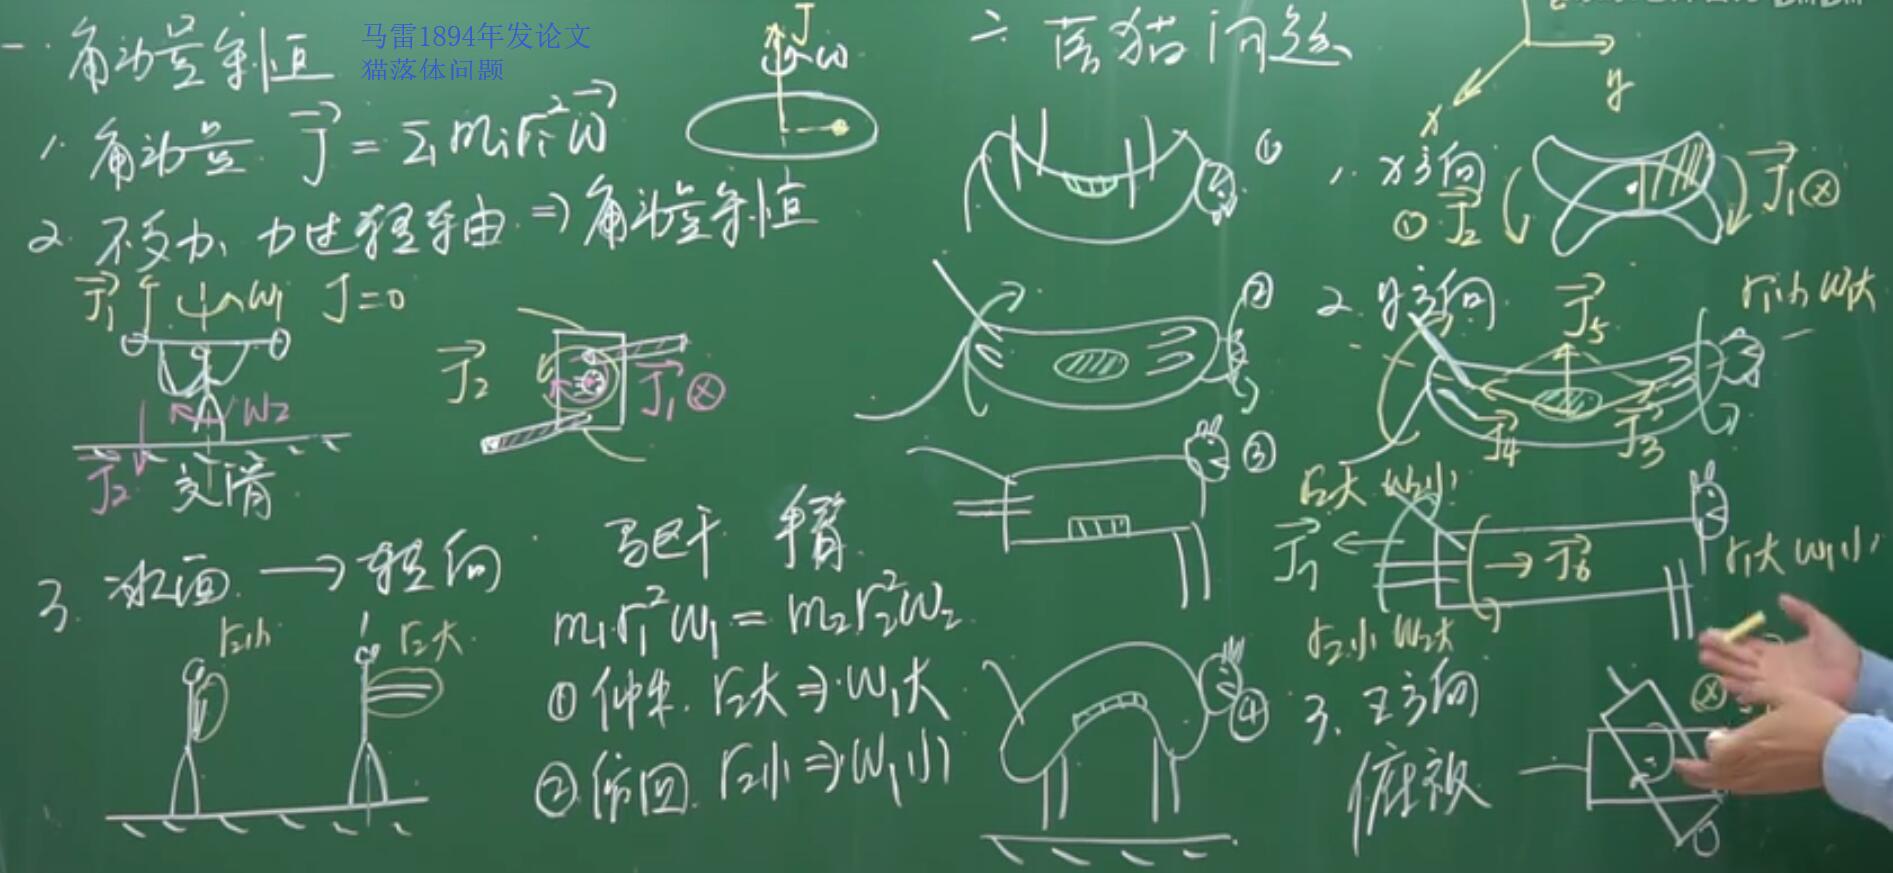 一. 角动量守恒
马雷1894年发论文
猫落体问题
1. 角动量 J = Σ mᵢrᵢ²ω
J
ω
2. 不受力、力过转轴 ⇒ 角动量守恒
J₁ ω₁ J=0
ω₂
J₂ 交滑
J₂ J₁⊗
3. 冰面 → 转向
r₂小 r₂大
躯干 手臂
m₁r₁²ω₁ = m₂r₂²ω₂
① 伸出 r₂大 ⇒ ω₁大
② 缩回 r₂小 ⇒ ω₁小
二. 落猫问题
①
②
③
④
x
y
1. x方向
① J₂ J₁⊗
2. y方向 J₅
r₁小 ω₁大
J₄ J₃
r₂大 ω₂小
J₇ J₆
r₁大 ω₁小
r₂小 ω₂大
3. Z方向
⊗
俯视